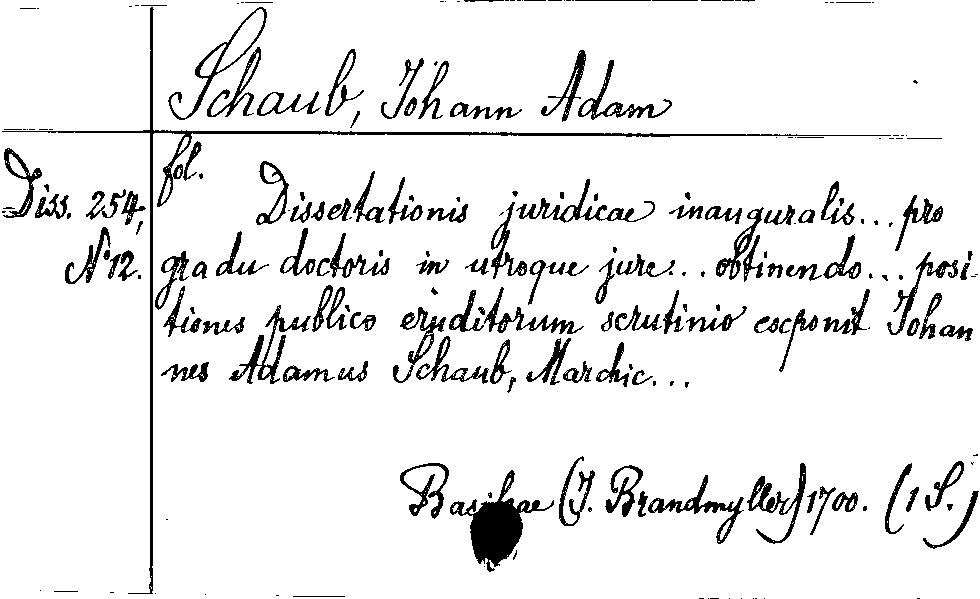 Schaub, Johann Adam
fol.
Diss. 254,
No 12.
Dissertationis juridicae inauguralis... pro
gradu doctoris in utroque jure... obtinendo... posi-
tiones publico eruditorum scrutinio exponit Johan
nes Adamus Schaub, Marchic...
Basileae (J. Brandmyller) 1700. (1 S.)